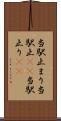 当駅止まり当
駅止 当駅
止り